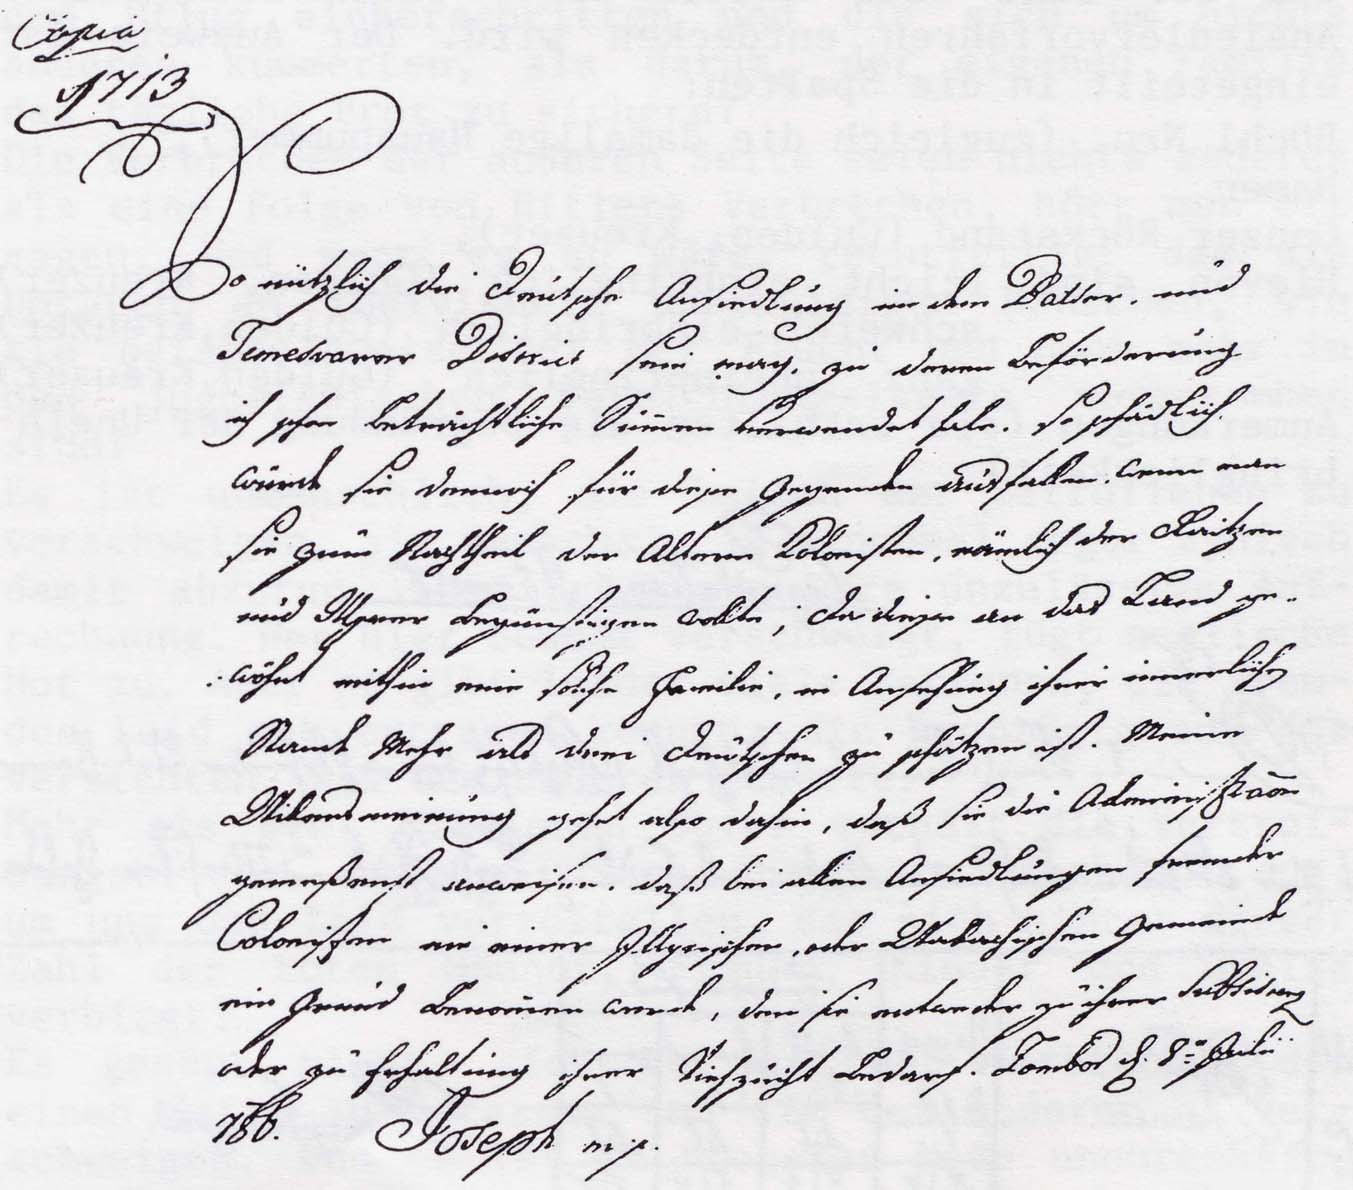 Copia
1713
So nützlich die deutsche Ansiedlung in dem Batser- und
Temesvarer District sein mag, zu deren Beförderung
ich schon beträchtliche Summen verwendet habe. so schädlich
würde sie dennoch für diese Gegenden ausfallen, wenn man
sie zum Nachtheil der Altern Kolonisten, nämlich der Raitzen
und begünstigen wollte; da diese an das Land ge-
wöhnt mithin eine solche Familie, in Ansehung ihrer innerlichen
Stand Mehr als drei deutschen zu schätzen ist. Meine
Willensmeinung gehet also dahin, daß sie die Administraon
gemeßenst anweisen. daß bei allen Ansiedlungen fremder
Colonisten nie einer Illyrischen, oder Walachischen Gemeinde
ein Grund benommen werde, den sie entweder zu ihrer Subsistenz
oder zu Erhaltung ihrer Viehzücht bedarf. Zombor d. 8ten Julii
786. Joseph m p.